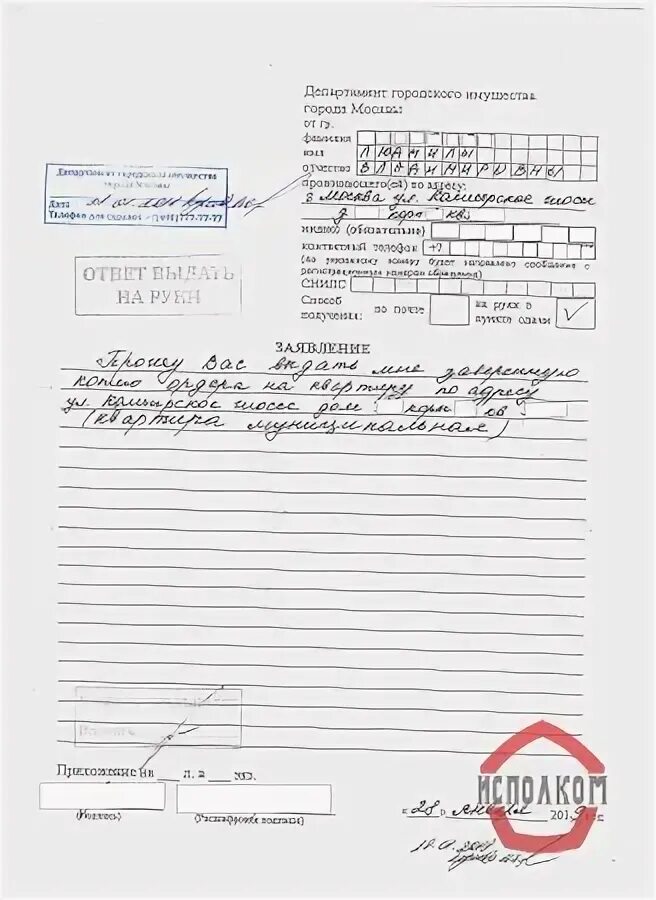 Департамент городского имущества
города Москвы
от гр.
фамилия
имя ЛЮДМИЛЫ
отчество ВЛАДИМИРОВНЫ
проживающего(ей) по адресу:
г Москва ул. Каширское шоссе
корп кв.
индекс (обязательно)
контактный телефон +7
(по указанному номеру будет направлено сообщение с
регистрационным номером обращения)
СНИЛС
Способ
получения: по почте на руки в
Департамент городского имущества
города Москвы
Дата
Телефон для справок
ОТВЕТ ВЫДАТЬ
НА РУКИ
ЗАЯВЛЕНИЕ
Прошу Вас выдать мне заверенную
копию ордера на квартиру по адресу
ул. Каширское шоссе дом корп кв
(квартира муниципальная)
Приложение на ___ л. в ___ экз.
(Подпись) (Расшифровка подписи)
« 28 » января 2019 г.
ИСПОЛКОМ